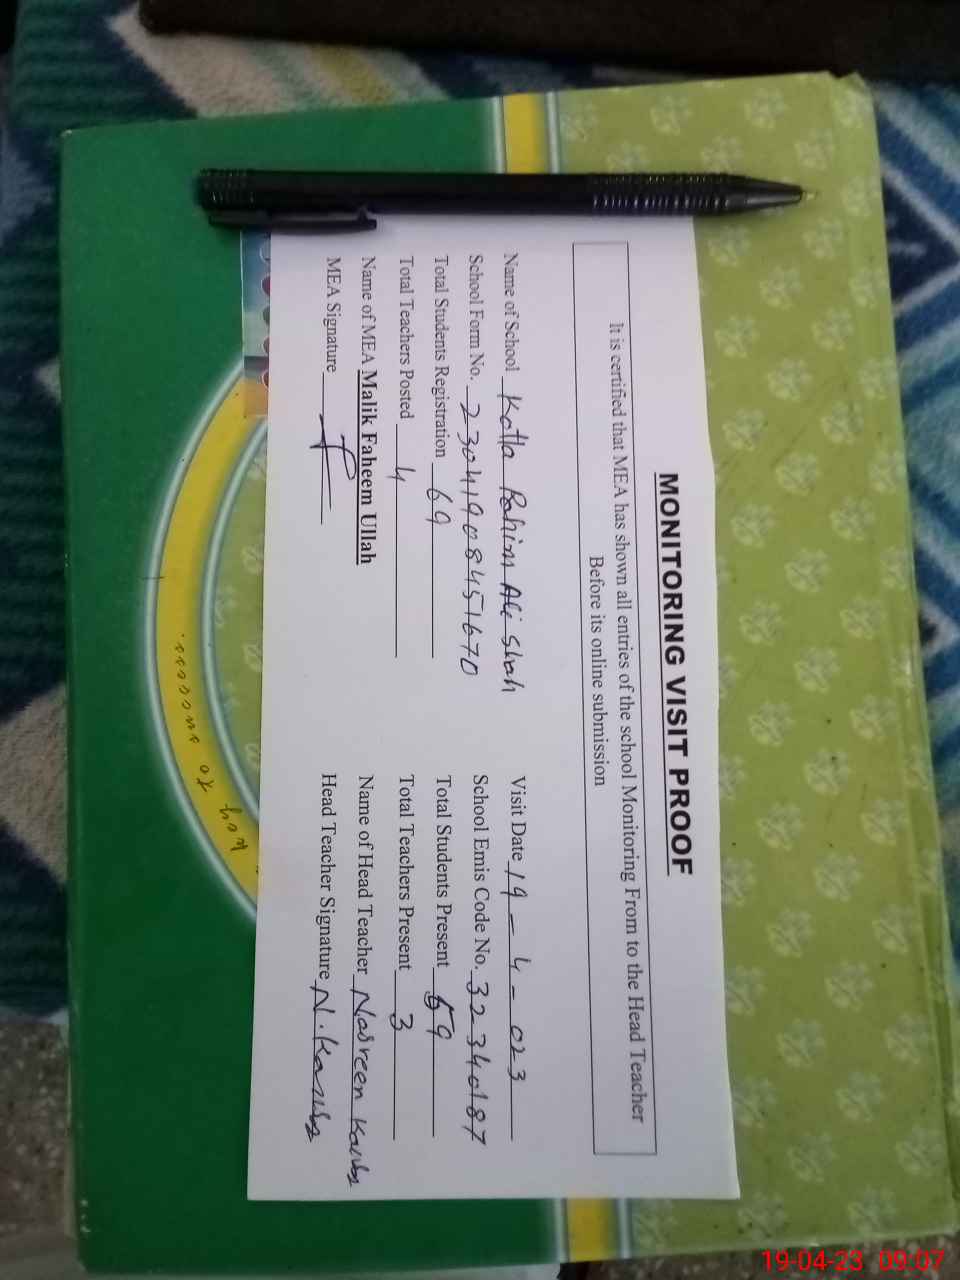 MONITORING VISIT PROOF
It is certified that MEA has shown all entries of the school Monitoring From to the Head Teacher
Before its online submission
Name of School Kotla Rahim Ali Shah Visit Date 19-4-023
School Form No. 23041908451670 School Emis Code No. 32340187
Total Students Registration 69 Total Students Present 59
Total Teachers Posted 4 Total Teachers Present 3
Name of MEA Malik Faheem Ullah Name of Head Teacher Nasreen
MEA Signature Head Teacher Signature N.
to success.
19-04-23 09:07